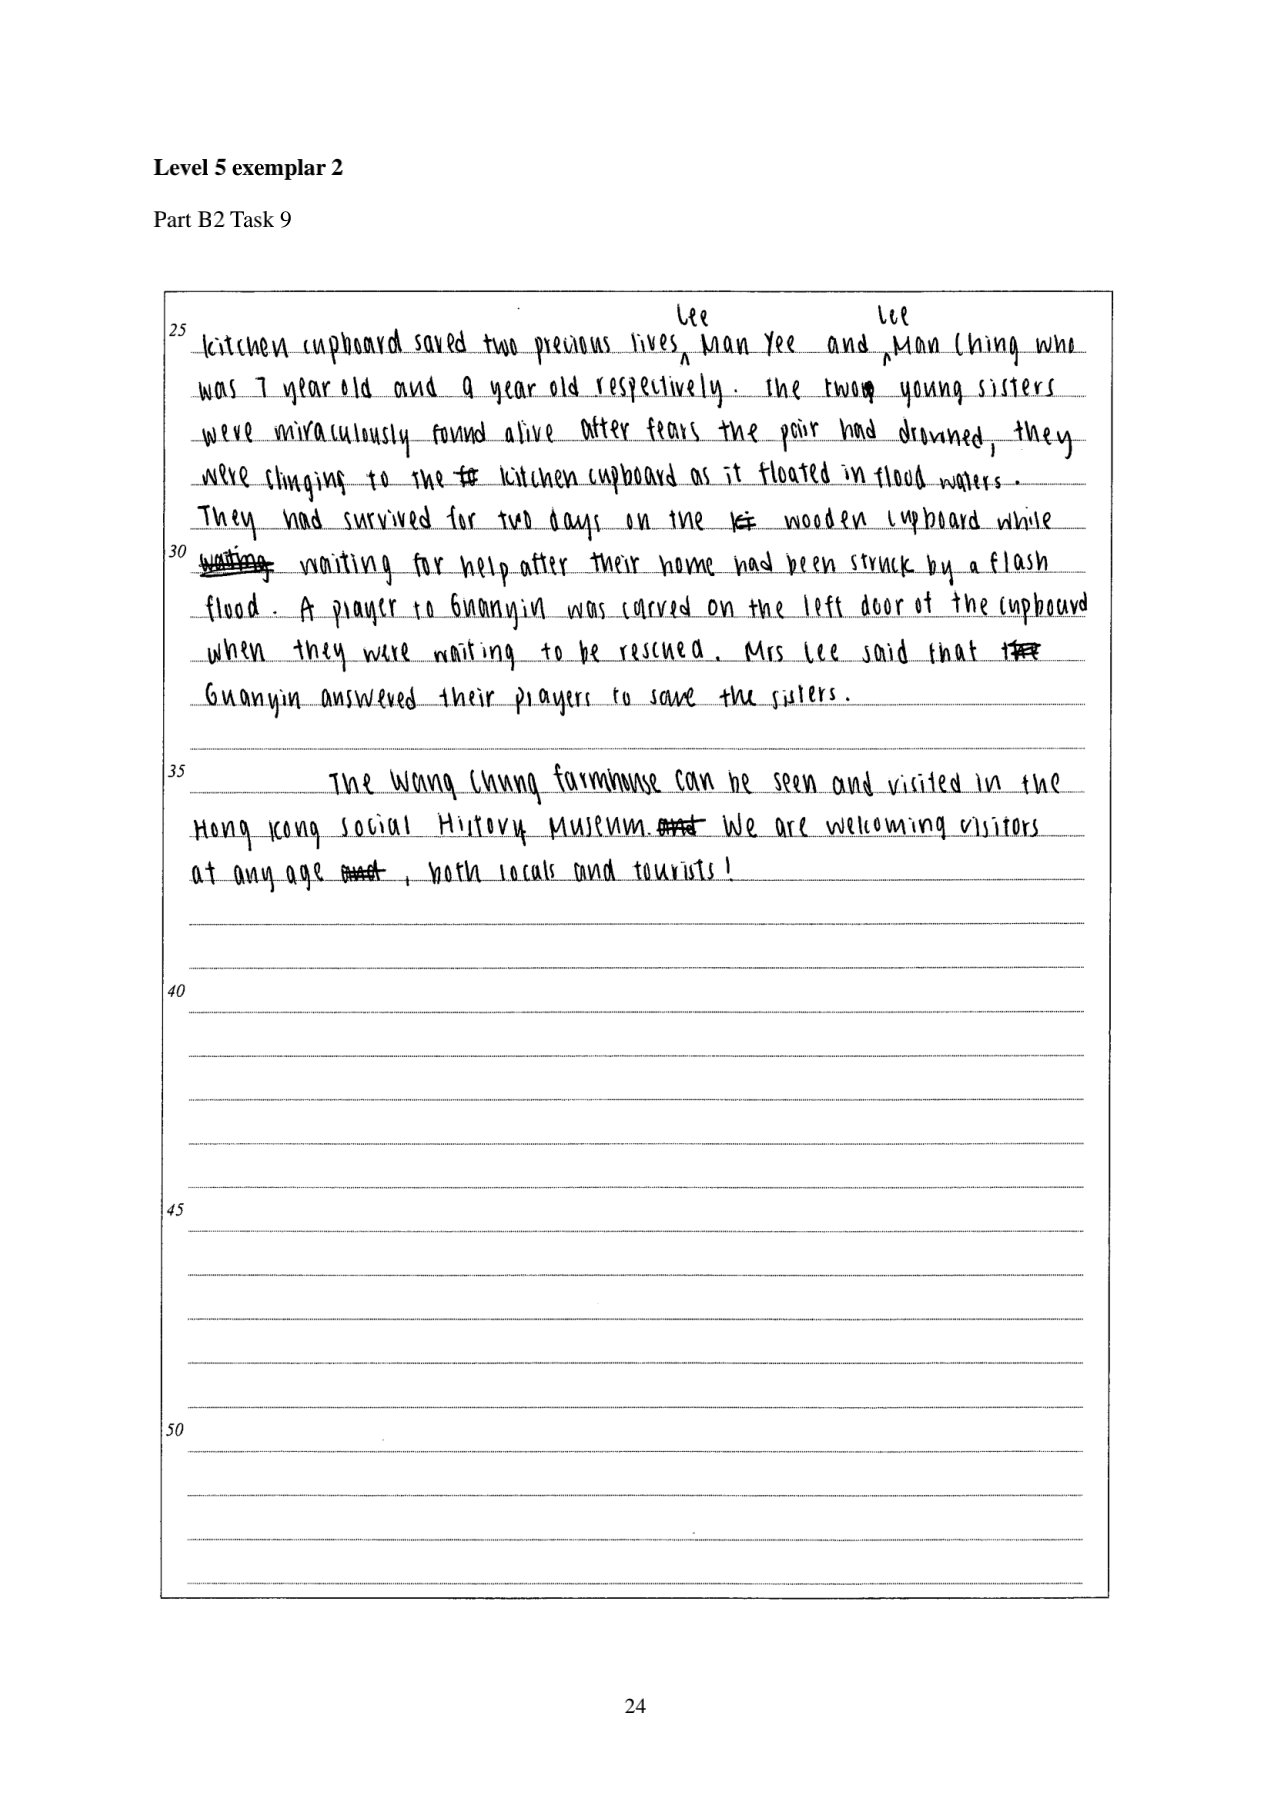 Level 5 exemplar 2
Part B2 Task 9
Lee Lee
25 kitchen cupboard saved two precious lives, Man Yee and Man Ching who
was 7 year old and 9 year old respectively. The two young sisters
were miraculously found alive after fears the pair had drowned, they
were clinging to the kitchen cupboard as it floated in flood waters.
They had survived for two days on the wooden cupboard while
30 waiting waiting for help after their home had been struck by a flash
flood. A prayer to Guanyin was carved on the left door of the cupboard
when they were waiting to be rescued. Mrs Lee said that the
Guanyin answered their prayers to save the sisters.
35 The Wang Chung farmhouse can be seen and visited in the
Hong Kong Social History Museum. and We are welcoming visitors
at any age and , both locals and tourists!
40
45
50
24